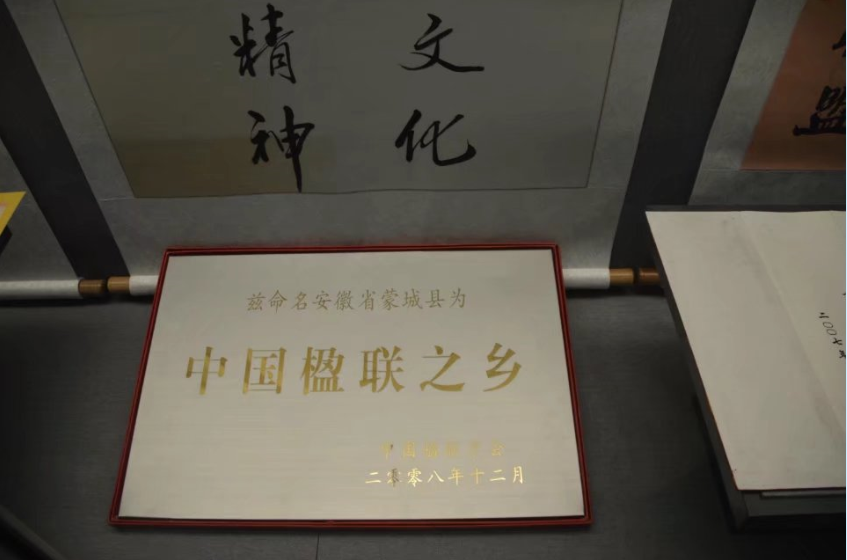 文化
精神
盟
兹命名安徽省蒙城县为
中国楹联之乡
中国楹联学会
二零零八年十二月
二00七